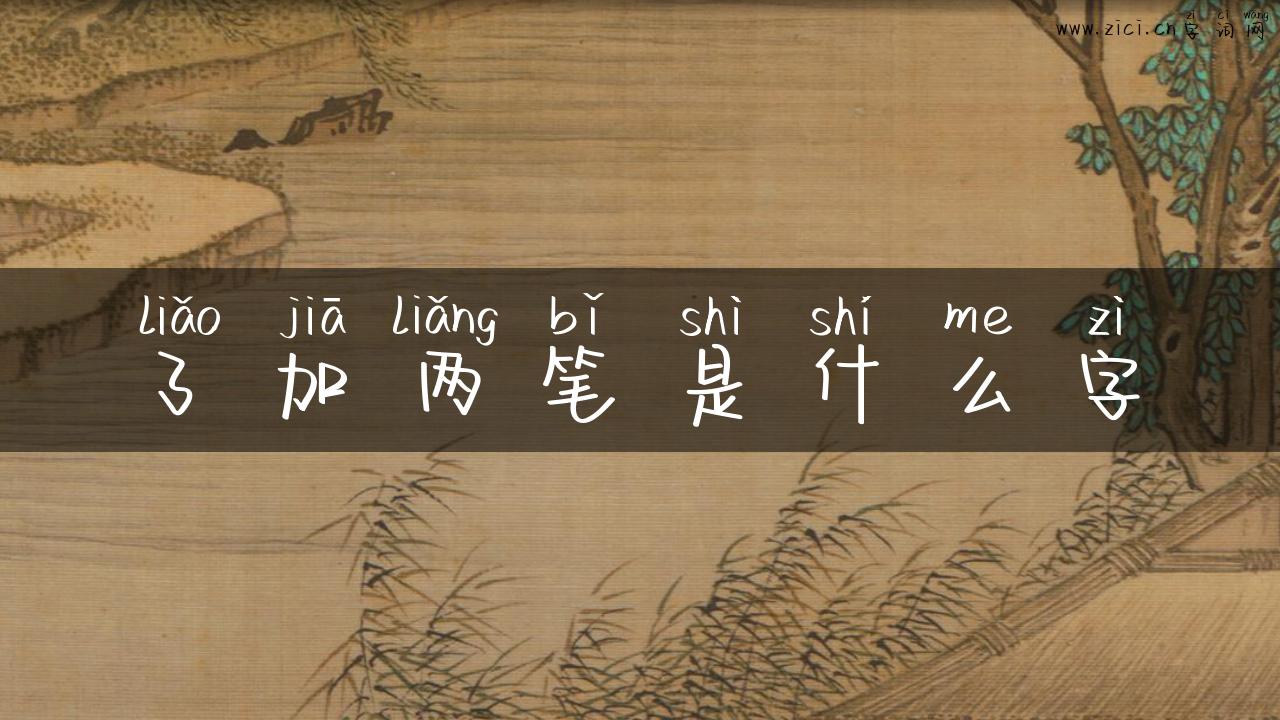 zì cí wǎng
www.zici.cn字词网
liǎo jiā liǎng bǐ shì shí me zì
了加两笔是什么字